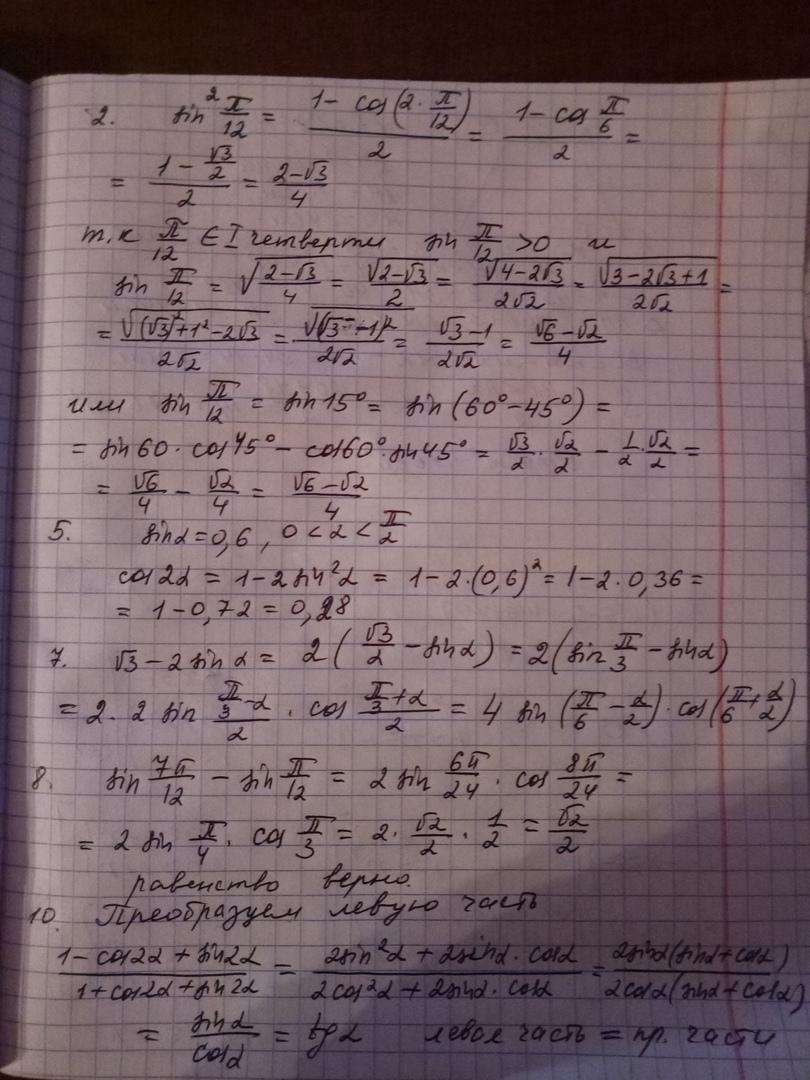 2. sin² π/12 = (1 - cos(2 · π/12))/2 = (1 - cos π/6)/2 =
= (1 - √3/2)/2 = (2-√3)/4
т.к π/12 ∈ I четверти sin π/12 > 0 и
sin π/12 = √((2-√3)/4) = √(2-√3)/2 = √(4-2√3)/(2√2) = √(3-2√3+1)/(2√2) =
= √((√3)²+1²-2√3)/(2√2) = √((√3-1)²)/(2√2) = (√3-1)/(2√2) = (√6-√2)/4
или sin π/12 = sin 15° = sin(60°-45°) =
= sin60 · cos45° - cos60° · sin45° = √3/2 · √2/2 - 1/2 · √2/2 =
= √6/4 - √2/4 = (√6-√2)/4
5. sinα = 0,6 , 0 < α < π/2
cos2α = 1-2sin²α = 1-2·(0,6)² = 1-2·0,36 =
= 1-0,72 = 0,28
7. √3-2sinα = 2(√3/2 - sinα) = 2(sin π/3 - sinα)
= 2·2 sin (π/3-α)/2 · cos (π/3+α)/2 = 4 sin(π/6 - α/2) · cos(π/6 + α/2)
8. sin 7π/12 - sin π/12 = 2 sin 6π/24 · cos 8π/24 =
= 2 sin π/4 · cos π/3 = 2 · √2/2 · 1/2 = √2/2
равенство верно.
10. Преобразуем левую часть
(1-cos2α+sin2α)/(1+cos2α+sin2α) = (2sin²α+2sinα·cosα)/(2cos²α+2sinα·cosα) = 2sinα(sinα+cosα)/2cosα(sinα+cosα)
= sinα/cosα = tgα левая часть = пр. части